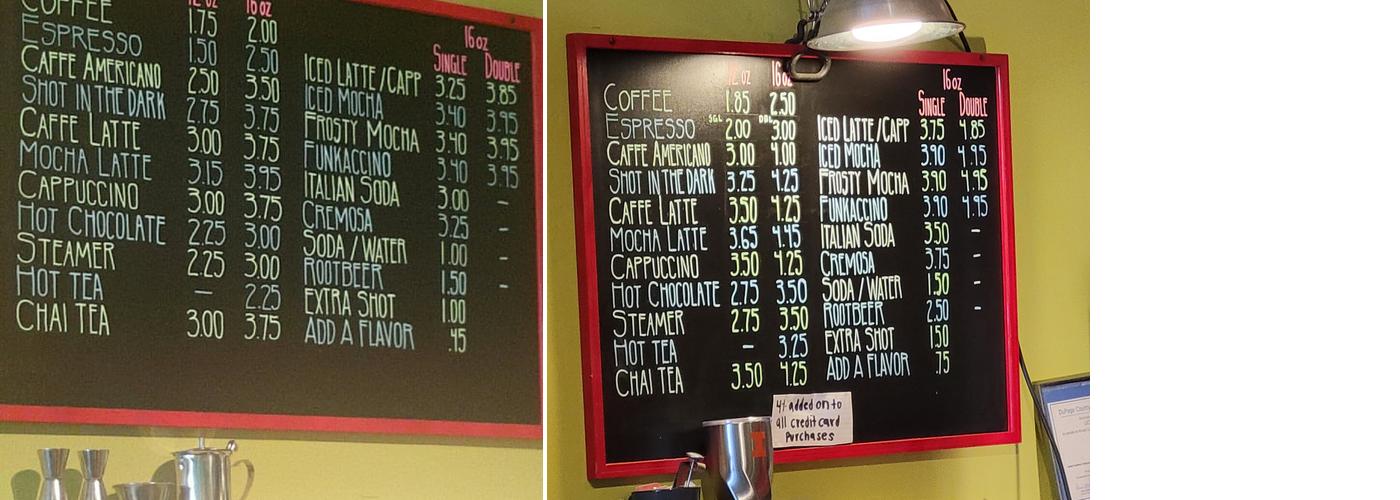 12 oz 16 oz
COFFEE 1.75 2.00
ESPRESSO 1.50 2.50
CAFFE AMERICANO 2.50 3.50
SHOT IN THE DARK 2.75 3.75
CAFFE LATTE 3.00 3.75
MOCHA LATTE 3.15 3.95
CAPPUCCINO 3.00 3.75
HOT CHOCOLATE 2.25 3.00
STEAMER 2.25 3.00
HOT TEA — 2.25
CHAI TEA 3.00 3.75
16 oz
SINGLE DOUBLE
ICED LATTE / CAPP 3.25 3.85
ICED MOCHA 3.40 3.95
FROSTY MOCHA 3.40 3.95
FUNKACCINO 3.40 3.95
ITALIAN SODA 3.00 -
CREMOSA 3.25 -
SODA / WATER 1.00 -
ROOTBEER 1.50 -
EXTRA SHOT 1.00
ADD A FLAVOR .45
12 oz 16 oz
COFFEE 1.85 2.50
ESPRESSO SGL 2.00 DBL 3.00
CAFFE AMERICANO 3.00 4.00
SHOT IN THE DARK 3.25 4.25
CAFFE LATTE 3.50 4.25
MOCHA LATTE 3.65 4.45
CAPPUCCINO 3.50 4.25
HOT CHOCOLATE 2.75 3.50
STEAMER 2.75 3.50
HOT TEA — 3.25
CHAI TEA 3.50 4.25
16 oz
SINGLE DOUBLE
ICED LATTE / CAPP 3.75 4.85
ICED MOCHA 3.90 4.95
FROSTY MOCHA 3.90 4.95
FUNKACCINO 3.90 4.95
ITALIAN SODA 3.50 -
CREMOSA 3.75 -
SODA / WATER 1.50 -
ROOTBEER 2.50 -
EXTRA SHOT 1.50
ADD A FLAVOR .75
4% added on to
all credit card
Purchases
DuPage County